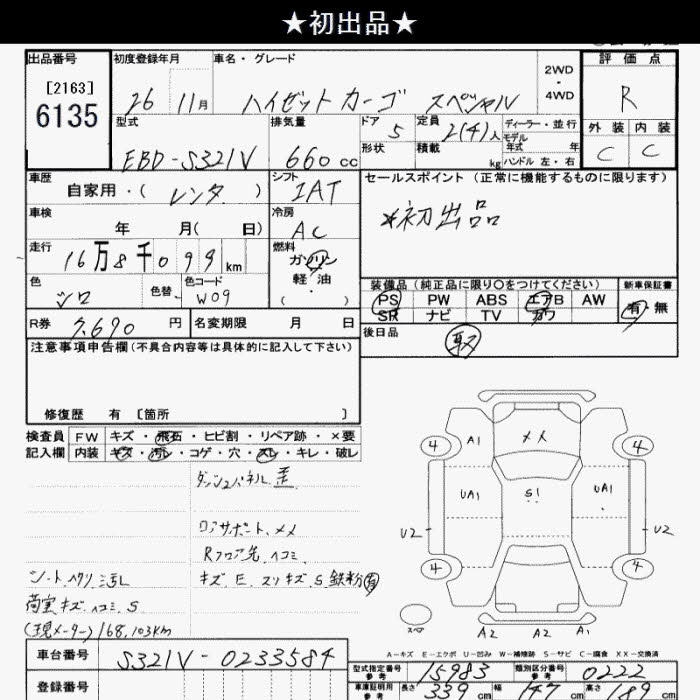 ★初出品★
出品番号 初度登録年月 車名・グレード 評価点
[2163]
6135
26 11月 ハイゼットカーゴ スペシャル 2WD 4WD R
型式 排気量 ドア 定員 ディーラー・並行 外装 内装
EBD-S321V 660cc 5 2(4)人 モデル年式 年 C C
形状 積載 kg ハンドル 左・右
車歴 シフト セールスポイント(正常に機能するものに限ります)
自家用・(レンタ) IAT *初出品
車検 冷房
年 月( 日) AC
走行 燃料
16万8千099km ガソリン
軽・油
・( )
色 色替 色コード
シロ W09
装備品(純正品に限り○をつけてください) 新車保証書
PS PW ABS エアB AW 有 無
SR ナビ TV カワ
R券 7,690円 名変期限 月 日 後日品
取
注意事項申告欄(不具合内容等は具体的に記入して下さい)
修復歴 有 [箇所 ]
検査員 FW キズ・飛石・ヒビ割・リペア跡・×要
記入欄 内装 キズ・汚レ・コゲ・穴・スレ・キレ・破レ
ダッシュパネル 歪
ロアサポート、メメ
Rフロア先 ヘコミ
キズ E スリキズ S 鉄粉有
シート ヘタリ 汚レ
荷室キズ ヘコミ S
(現メーター)168,103KM
4 A1 メメ 4
UA1 S1 UA1
U2 U2
4 4
スペア
A2 A2 A1
A-キズ E-エクボ U-凹み W-補修跡 S-サビ C-腐食 XX-交換済
車台番号 S321V-0233584
登録番号
型式指定番号 参考 15983 類別区分番号 参考 0222
車庫証明用 参考 長さ 339cm 幅 147cm 高さ 189cm